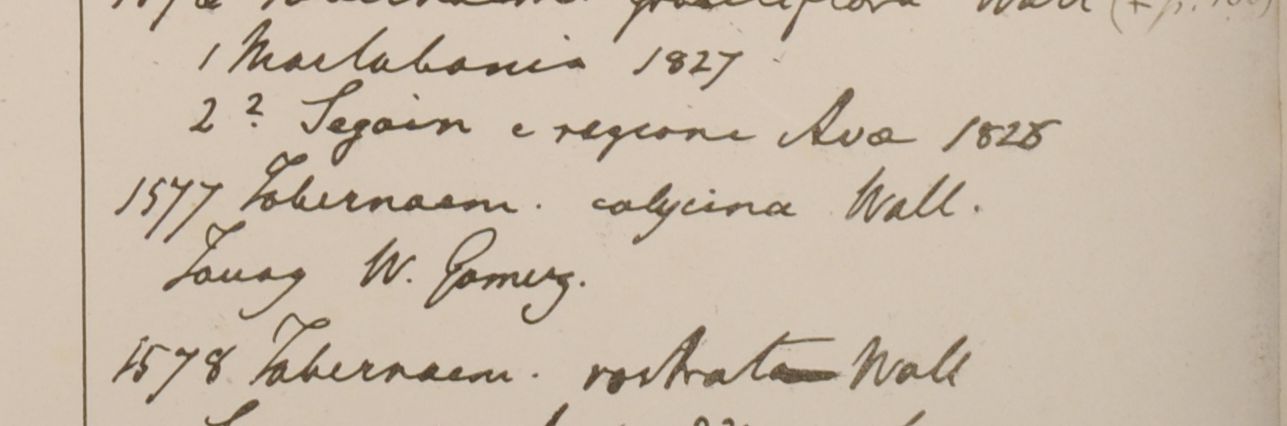 1576 Tabernaem. graciliflora Wall (+ p.
1 Martabania 1827
2 ? Segain e regione Ava 1828
1577 Tabernaem. calycina Wall.
Tavay W. Gomez.
1578 Tabernaem. rostrata Wall